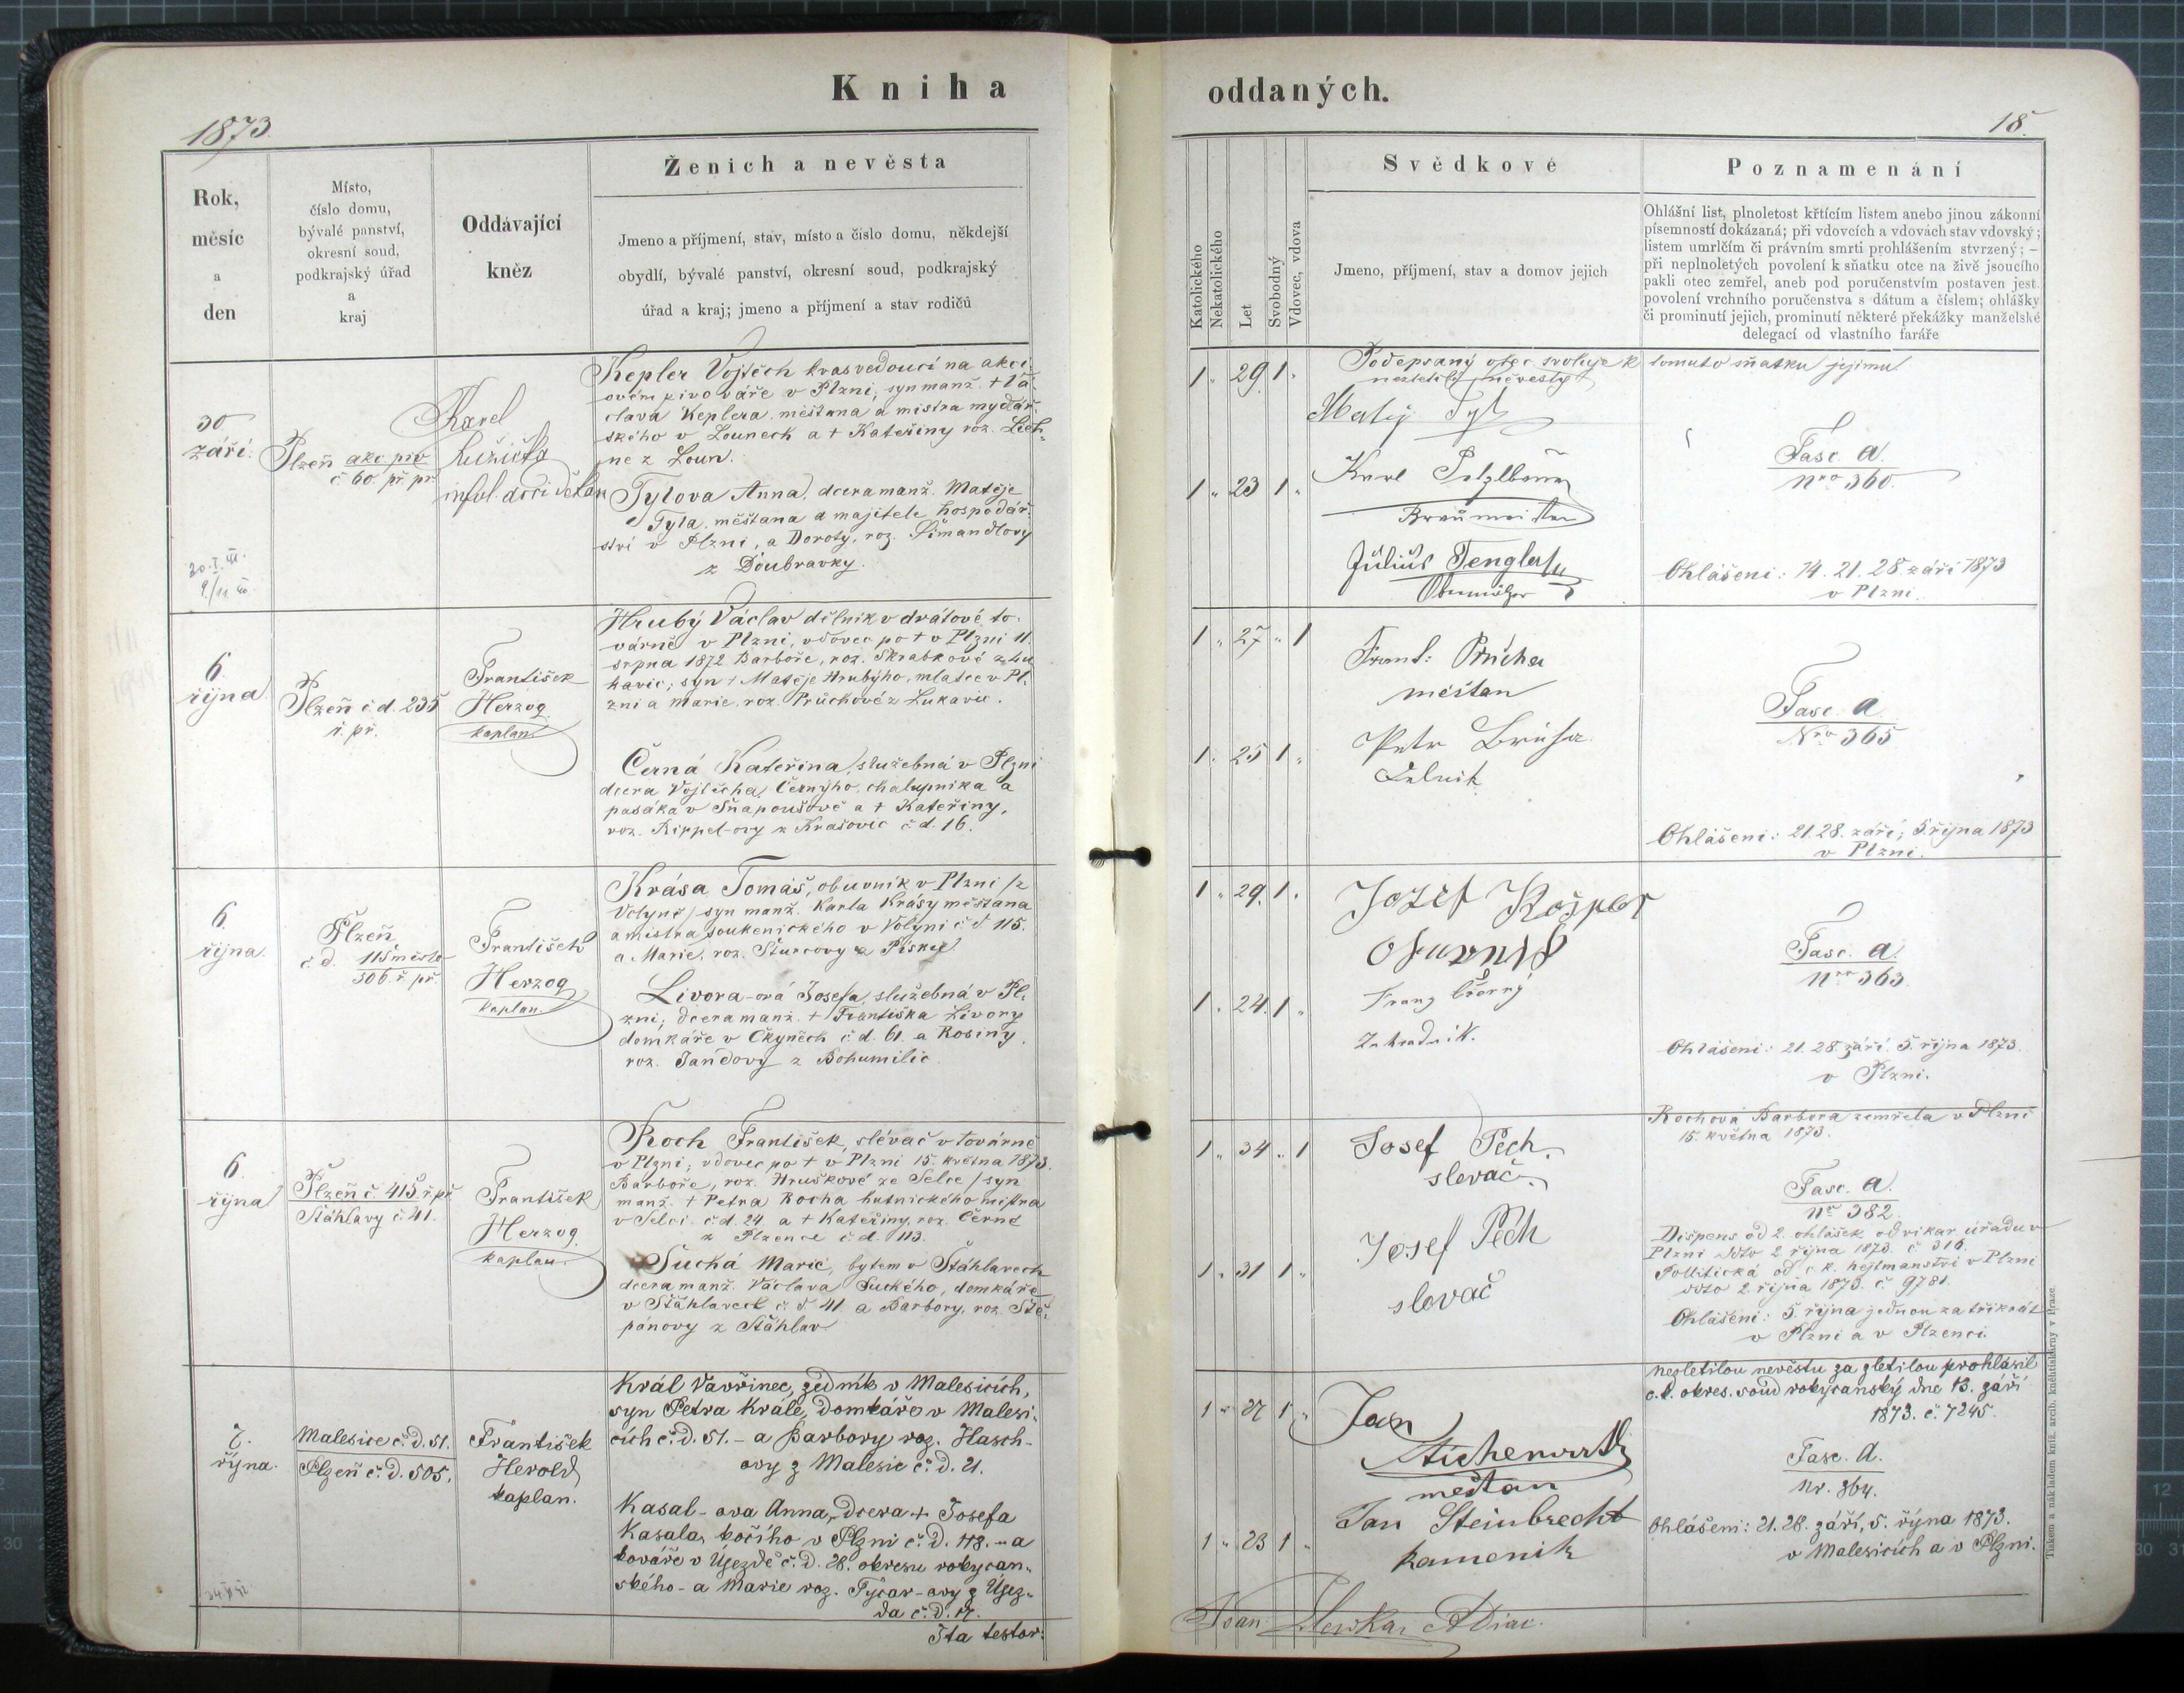 Kniha
oddaných.
1873.
18.
Rok,
měsíc
a
den
Místo,
číslo domu,
bývalé panství,
okresní soud,
podkrajský úřad
a
kraj
Oddávající
kněz
Ženich a nevěsta
Jmeno a příjmení, stav, místo a číslo domu, někdejší
obydlí, bývalé panství, okresní soud, podkrajský
úřad a kraj; jmeno a příjmení a stav rodičů
Katolického
Nekatolického
Let
Svobodný
Vdovec, vdova
Svědkové
Jmeno, příjmení, stav a domov jejich
Poznamenání
Ohlášní list, plnoletost křtícím listem anebo jinou zákonní
písemností dokázaná; při vdovcích a vdovách stav vdovský;
listem umrlčím či právním smrti prohlášením stvrzený; —
při neplnoletých povolení k sňatku otce na živě jsoucího
pakli otec zemřel, aneb pod poručenstvím postaven jest.
povolení vrchního poručenstva s dátum a číslem; ohlášky
či prominutí jejich, prominutí některé překážky manželské
delegací od vlastního faráře
30
září.
Plzeň akc. piv
č 60. př. př.
Karel
Růžička
inful. arciděkan
Kepler Vojtěch kvasvedoucí na akci-
ovém pivováře v Plzni, syn manž. + Vá-
clava Keplera, měšťana a mistra mydlář-
ského v Lounech a + Kateřiny roz. Lech-
ne z Loun.
Tylova Anna, dcera manž. Matěje
Tyla, měšťana a majitele hospodář-
ství v Plzni, a Doroty, roz. Šimandlovy
z Doubravky.
1 " 29 1 "
1 " 23 1 "
Podepsaný otec svoluje k tomuto sňatku jejimu
nezletilé nevěsty
Matěj Tyl
Karl
Braumeister
Julius
Fasc. a.
nro 360.
Ohlášeni: 14. 21. 28 září 1873
v Plzni.
6.
října
Plzeň č d. 235
ř. př.
František
Herzog
kaplan
Hrubý Václav dělník v drátové to-
várně v Plzni, vdovec po + v Plzni 11.
srpna 1872 Barboře, roz. Škrabkové z Lu
kavic; syn + Matěje Hrubýho, mlatce v Pl-
zni a Marie, roz. Průchové z Lukavic.
Černá Kateřina, služebná v Plzni
dcera Vojtěcha Černýho, chalupníka a
pasáka v Šnapoušově a + Kateřiny,
roz. Rippel-ovy z Krašovic č d. 16.
1 " 27 " 1
1 " 25 1 "
Frant: Průcha
měštan
Petr
Fasc. a
Nro 365
Ohlášeni: 21. 28. září, 5. října 1873
v Plzni.
6.
října.
Plzeň
č d. 115 město
306. ř př.
František
Herzog
kaplan
Krása Tomáš, obuvník v Plzni /z
Volyně/ syn manž. Karla Krásy měšťana
a mistra soukenického v Volyni č d 115.
a Marie, roz. Šturcovy z Písku.
Livora-ová Josefa, služebná v Pl-
zni; dcera manž. + Františka Livory
domkáře v Čkyněch č d. 61. a Rosiny
roz. Jandovy z Bohumilic
1 " 29. 1 "
1 " 24. 1 "
Jozef Kašpar
Obuvník
Franz Černý
Zahradník.
Fasc. a.
nro 363.
Ohlášeni: 21. 28. září 5. října 1873.
v Plzni.
6.
října
Plzeň č 415. ř. př
Štáhlavy č. 41.
František
Herzog
kaplan
Roch František, slévač v továrně
v Plzni; vdovec po + v Plzni 15. května 1873.
Barboře, roz. Hruškové ze Selce /syn
manž. + Petra Rocha hutnického mistra
v Selci č d. 24 a + Kateřiny, roz. Černé
z Plzence č d. 113.
Suchá Marie, bytem v Štáhlavech
dcera manž. Václava Suchého, domkáře
v Štáhlavech č d 41. a Barbory, roz. Ště-
pánovy z Štáhlav
1 " 34 " 1
1 " 31 1 "
Josef Pech.
slevač.
Josef Pech
slovač
Rochova Barbora zemřela v Plzni
15. května 1873.
Fasc. a.
nro 382.
Dispens od 2. ohlášek od vikar. úřadu v
Plzni ddto 2 října 1873. č 316.
Politická od c. k. hejtmanství v Plzni
ddto 2. října 1873. č 9781.
Ohlášeni: 5. října jednou za třikrát
v Plzni a v Plzenci.
7.
října.
Malesice č. d. 51.
Plzeň č. d. 505.
František
Herold
kaplan.
Král Vavřinec, zedník v Malesicích,
syn Petra Krále, domkáře v Malesi-
cích č. d. 51. - a Barbory roz. Hasch-
ovy z Malesic č. d. 21.
Kasal-ova Anna, dcera + Josefa
Kasala, kočího v Plzni č. d. 118. - a
kováře v Újezdě č. d. 28. okresu rokycan-
ského - a Marie roz. Tyčar-ovy z Újez-
da č. d. 17.
Ita testor:
1 " 27 1 "
1 " 23 1 "
Jan
měštan
Jan Steinbrecht
kameník
Nezletilou nevěstu za zletilou prohlásil
c. k. okres. soud rokycanský dne 13. září
1873. č. 7245.
Fasc. a.
nr. 364.
Ohlášeni: 21. 28. září, 5. října 1873.
v Malesicích a v Plzni.
Tiskem a nákladem kníž. arcib. knihtiskárny v Praze.